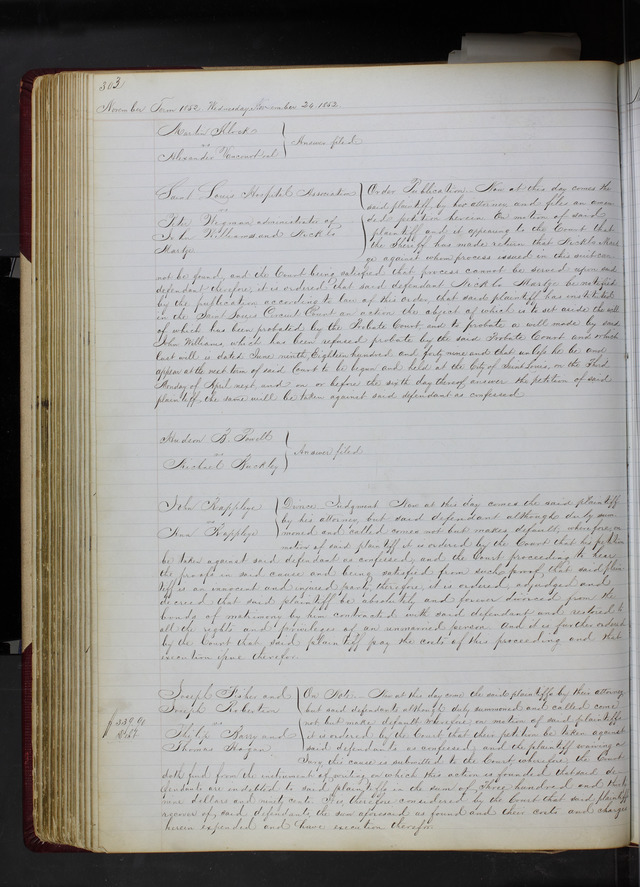 303
November Term 1852. Wednesday November 24. 1852
Martin
vs
Alexander
Answer filed
Saint Louis Hospital Association
vs
Peter Wegman administrator of
John Williams and
Order Publication. Now at this day comes the
said plaintiff, by her attorney and files an amen
ded petition herein On motion of said
plaintiff and it appearing to the Court that
the Sheriff has made return that
against whom process issued in this suit can
not be found, and the Court being satisfied that process cannot be served upon said
defendant therefore it is ordered that said defendant be notified
by the publication according to law of this order, that said plaintiff has instituted
in the Saint Louis Circuit Court an action the object of which is to set aside the will
of which has been probated by the Probate Court and to probate a will made by said
John Williams, which has been refused probate by the said Probate Court and which
last will is dated June ninth Eighteen hundred and forty nine and that unless he be and
appear at the next term of said Court to be begun and held at the City of Saint Louis, on the Third
Monday of April next, and on or before the sixth day thereof answer the petition of said
plaintiff, the same will be taken against said defendant as confessed
Hudson B. Powell
vs
Michael Buckley
Answer filed
John Kapplye
vs
Ann Kapplye
Divorce Judgment Now at this day comes the said plaintiff
by his attorney, but said defendant although duly sum
moned and called comes not but makes default, wherefore, on
motion of said plaintiff it is ordered by the Court that his petition
be taken against said defendant as confessed, and the Court proceeding to hear
the proofs in said cause and being satisfied from such proof, that said plain
tiff is an innocent and injured party, therefore, it is ordered, adjudged and
decreed that said plaintiff be absolutely and forever divorced from the
bonds of matrimony by him contracted with said defendant and restored to
all the rights and privileges of an unmarried person. And it is further ordered
by the Court that said plaintiff pay the costs of this proceeding and that
execution issue therefor
Joseph Fisher and
Joseph Robertson
vs
Philip Barry and
Thomas Hogan
$339.90
On Note. Now at this day come the said plaintiffs by their attorney
but said defendants although duly summoned and called come
not but make default wherefore on motion of said plaintiffs
it is ordered by the Court that their petition be taken against
said defendants as confessed, and the plaintiff waiving a
Jury, this cause is submitted to the Court wherefore the Court
doth find from the instrument of writing on which this action is founded that said de
fendants are indebted to said plaintiffs in the sum of Three hundred and thirty
nine dollars and ninety cents. It is, therefore considered by the Court that said plaintiffs
recover of said defendants the sum aforesaid as found and their costs and charges
herein expended and have execution therefor.